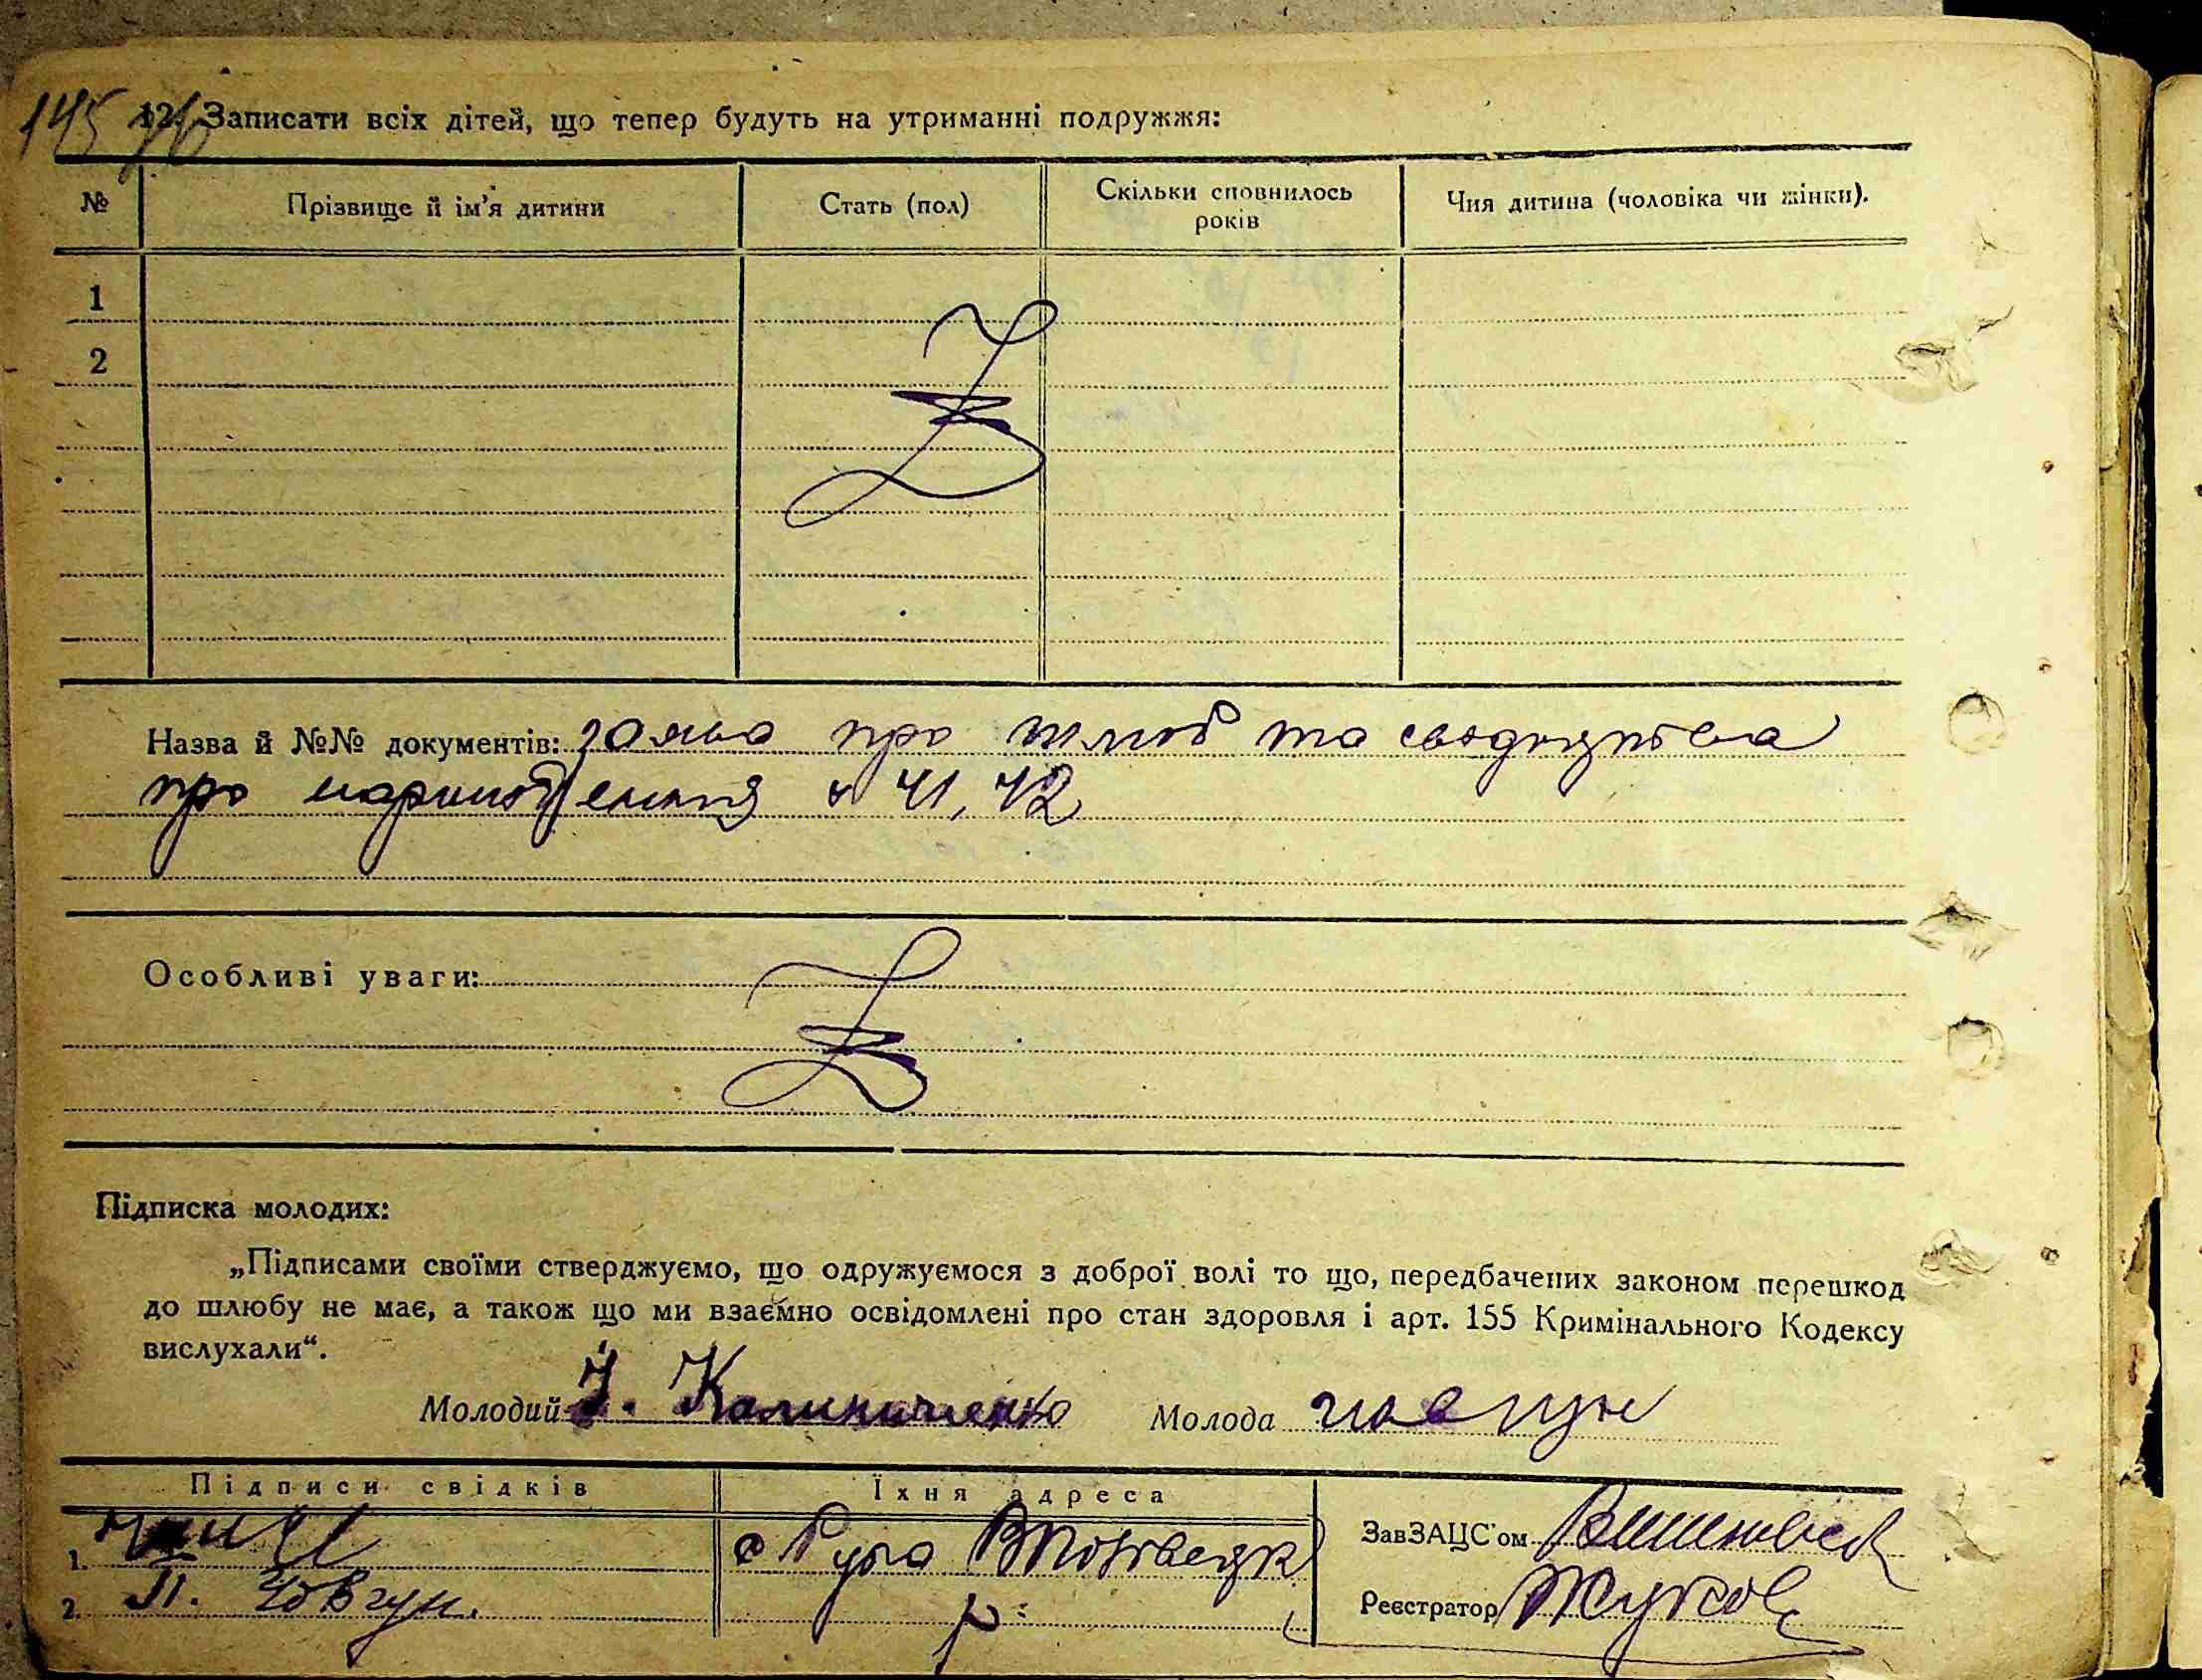 145
12. Записати всіх дітей, що тепер будуть на утриманні подружжя:
№ Прізвище й ім'я дитини Стать (пол) Скільки сповнилось років Чия дитина (чоловіка чи жінки).
1
2
Назва й №№ документів: заява про шлюб та свидоцтва
про народження № 41, 42
Особливі уваги:
Підписка молодих:
„Підписами своїми стверджуємо, що одружуємося з доброї волі то що, передбачених законом перешкод
до шлюбу не має, а також що ми взаємно освідомлені про стан здоровля і арт. 155 Кримінального Кодексу
вислухали“.
Молодий І. Калиниченко Молода
Підписи свідків Їхня адреса
1. с Руда ЗавЗАЦС'ом
2. р. Реєстратор Жуков